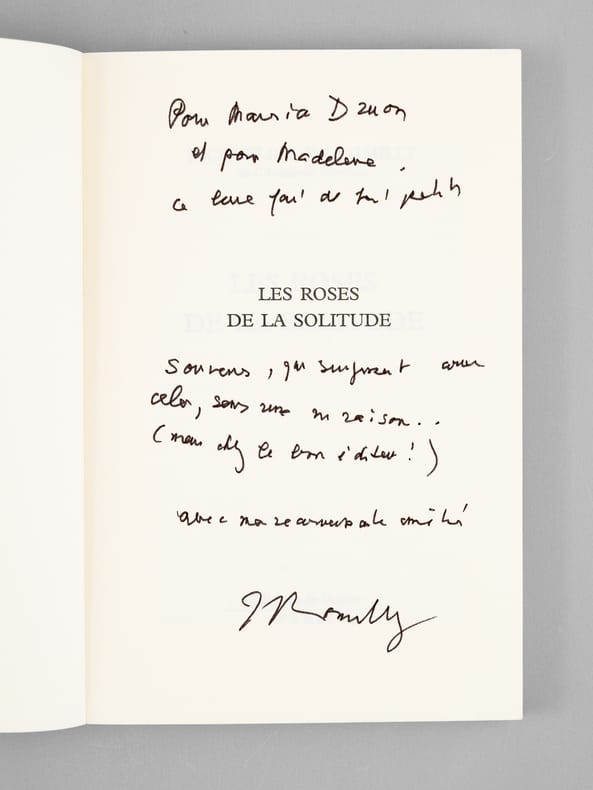 Pour Maurice Druon
et pour Madeleine,
ce livre fait de petits
LES ROSES
DE LA SOLITUDE
souvenirs, qui surgissent avec
, sans rime ni raison..
(mais chez le bon éditeur!)
avec ma reconnaissante amitié
JRomilly